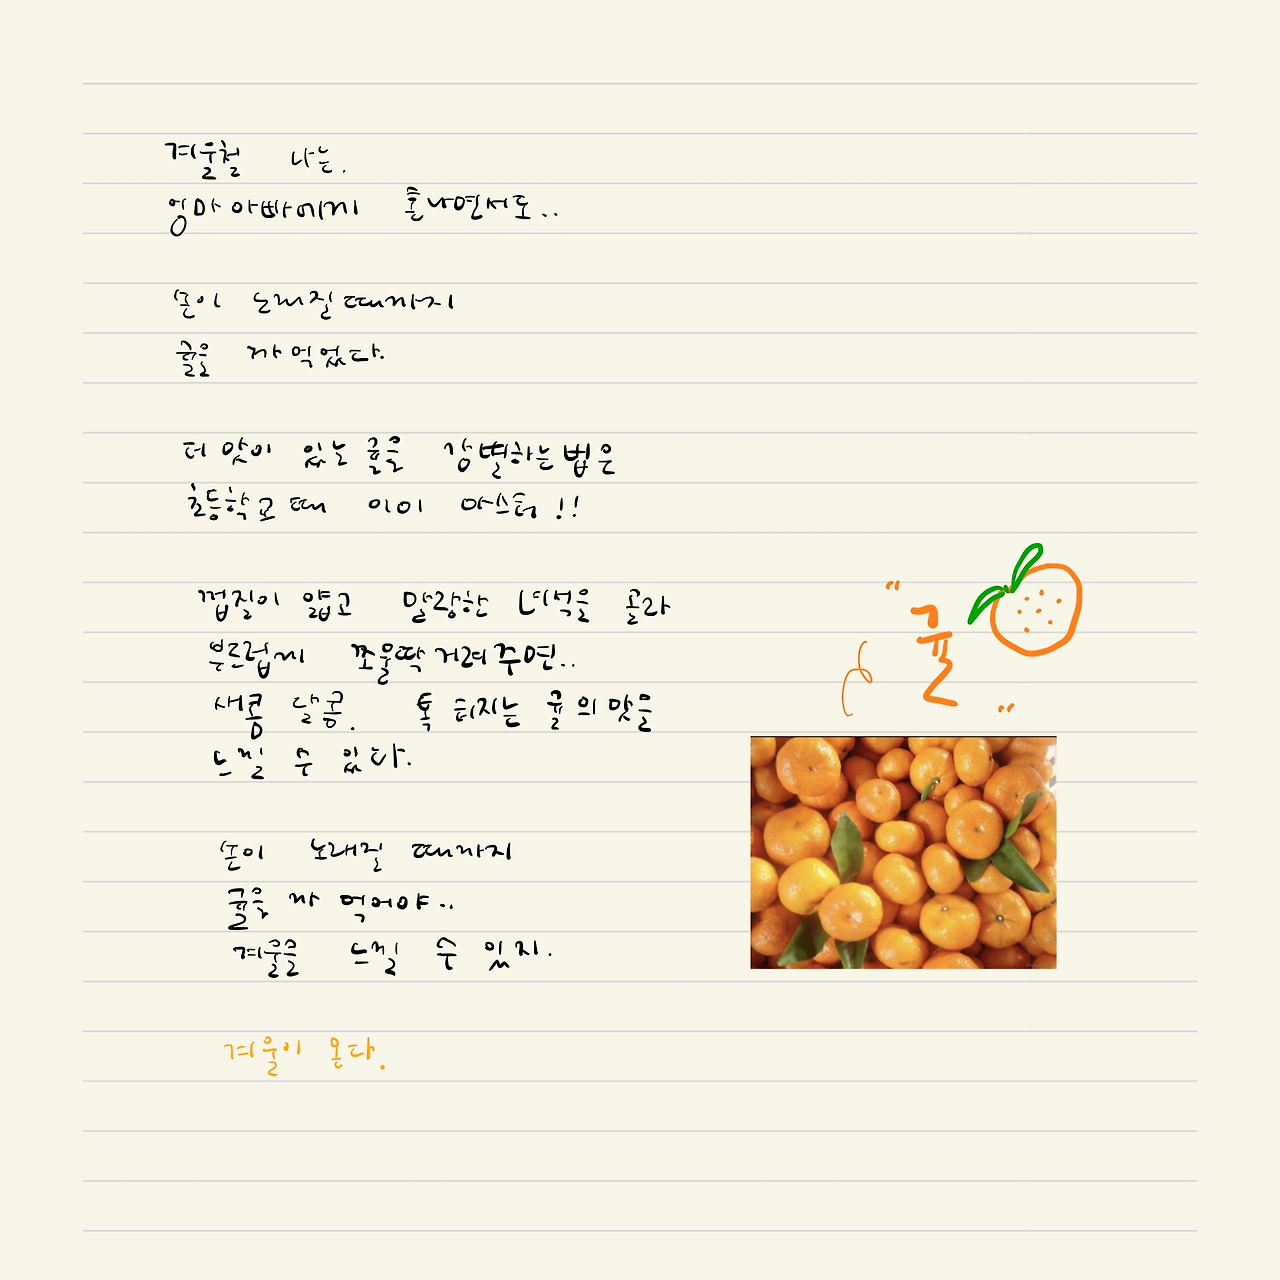 겨울철 나는.
엄마 아빠에게 혼나면서도..
손이 노래질 때까지
귤을 까 먹었다.
더 맛이 있는 귤을 감별하는 법은
초등학교 때 이미 마스터!!
껍질이 얇고 말랑한 녀석을 골라
부드럽게 쪼물딱 거려 주면..
새콤 달콤. 톡 터지는 귤의 맛을
느낄 수 있다.
손이 노래질 때까지
귤을 까 먹어야..
겨울을 느낄 수 있지.
겨울이 온다.
"귤"